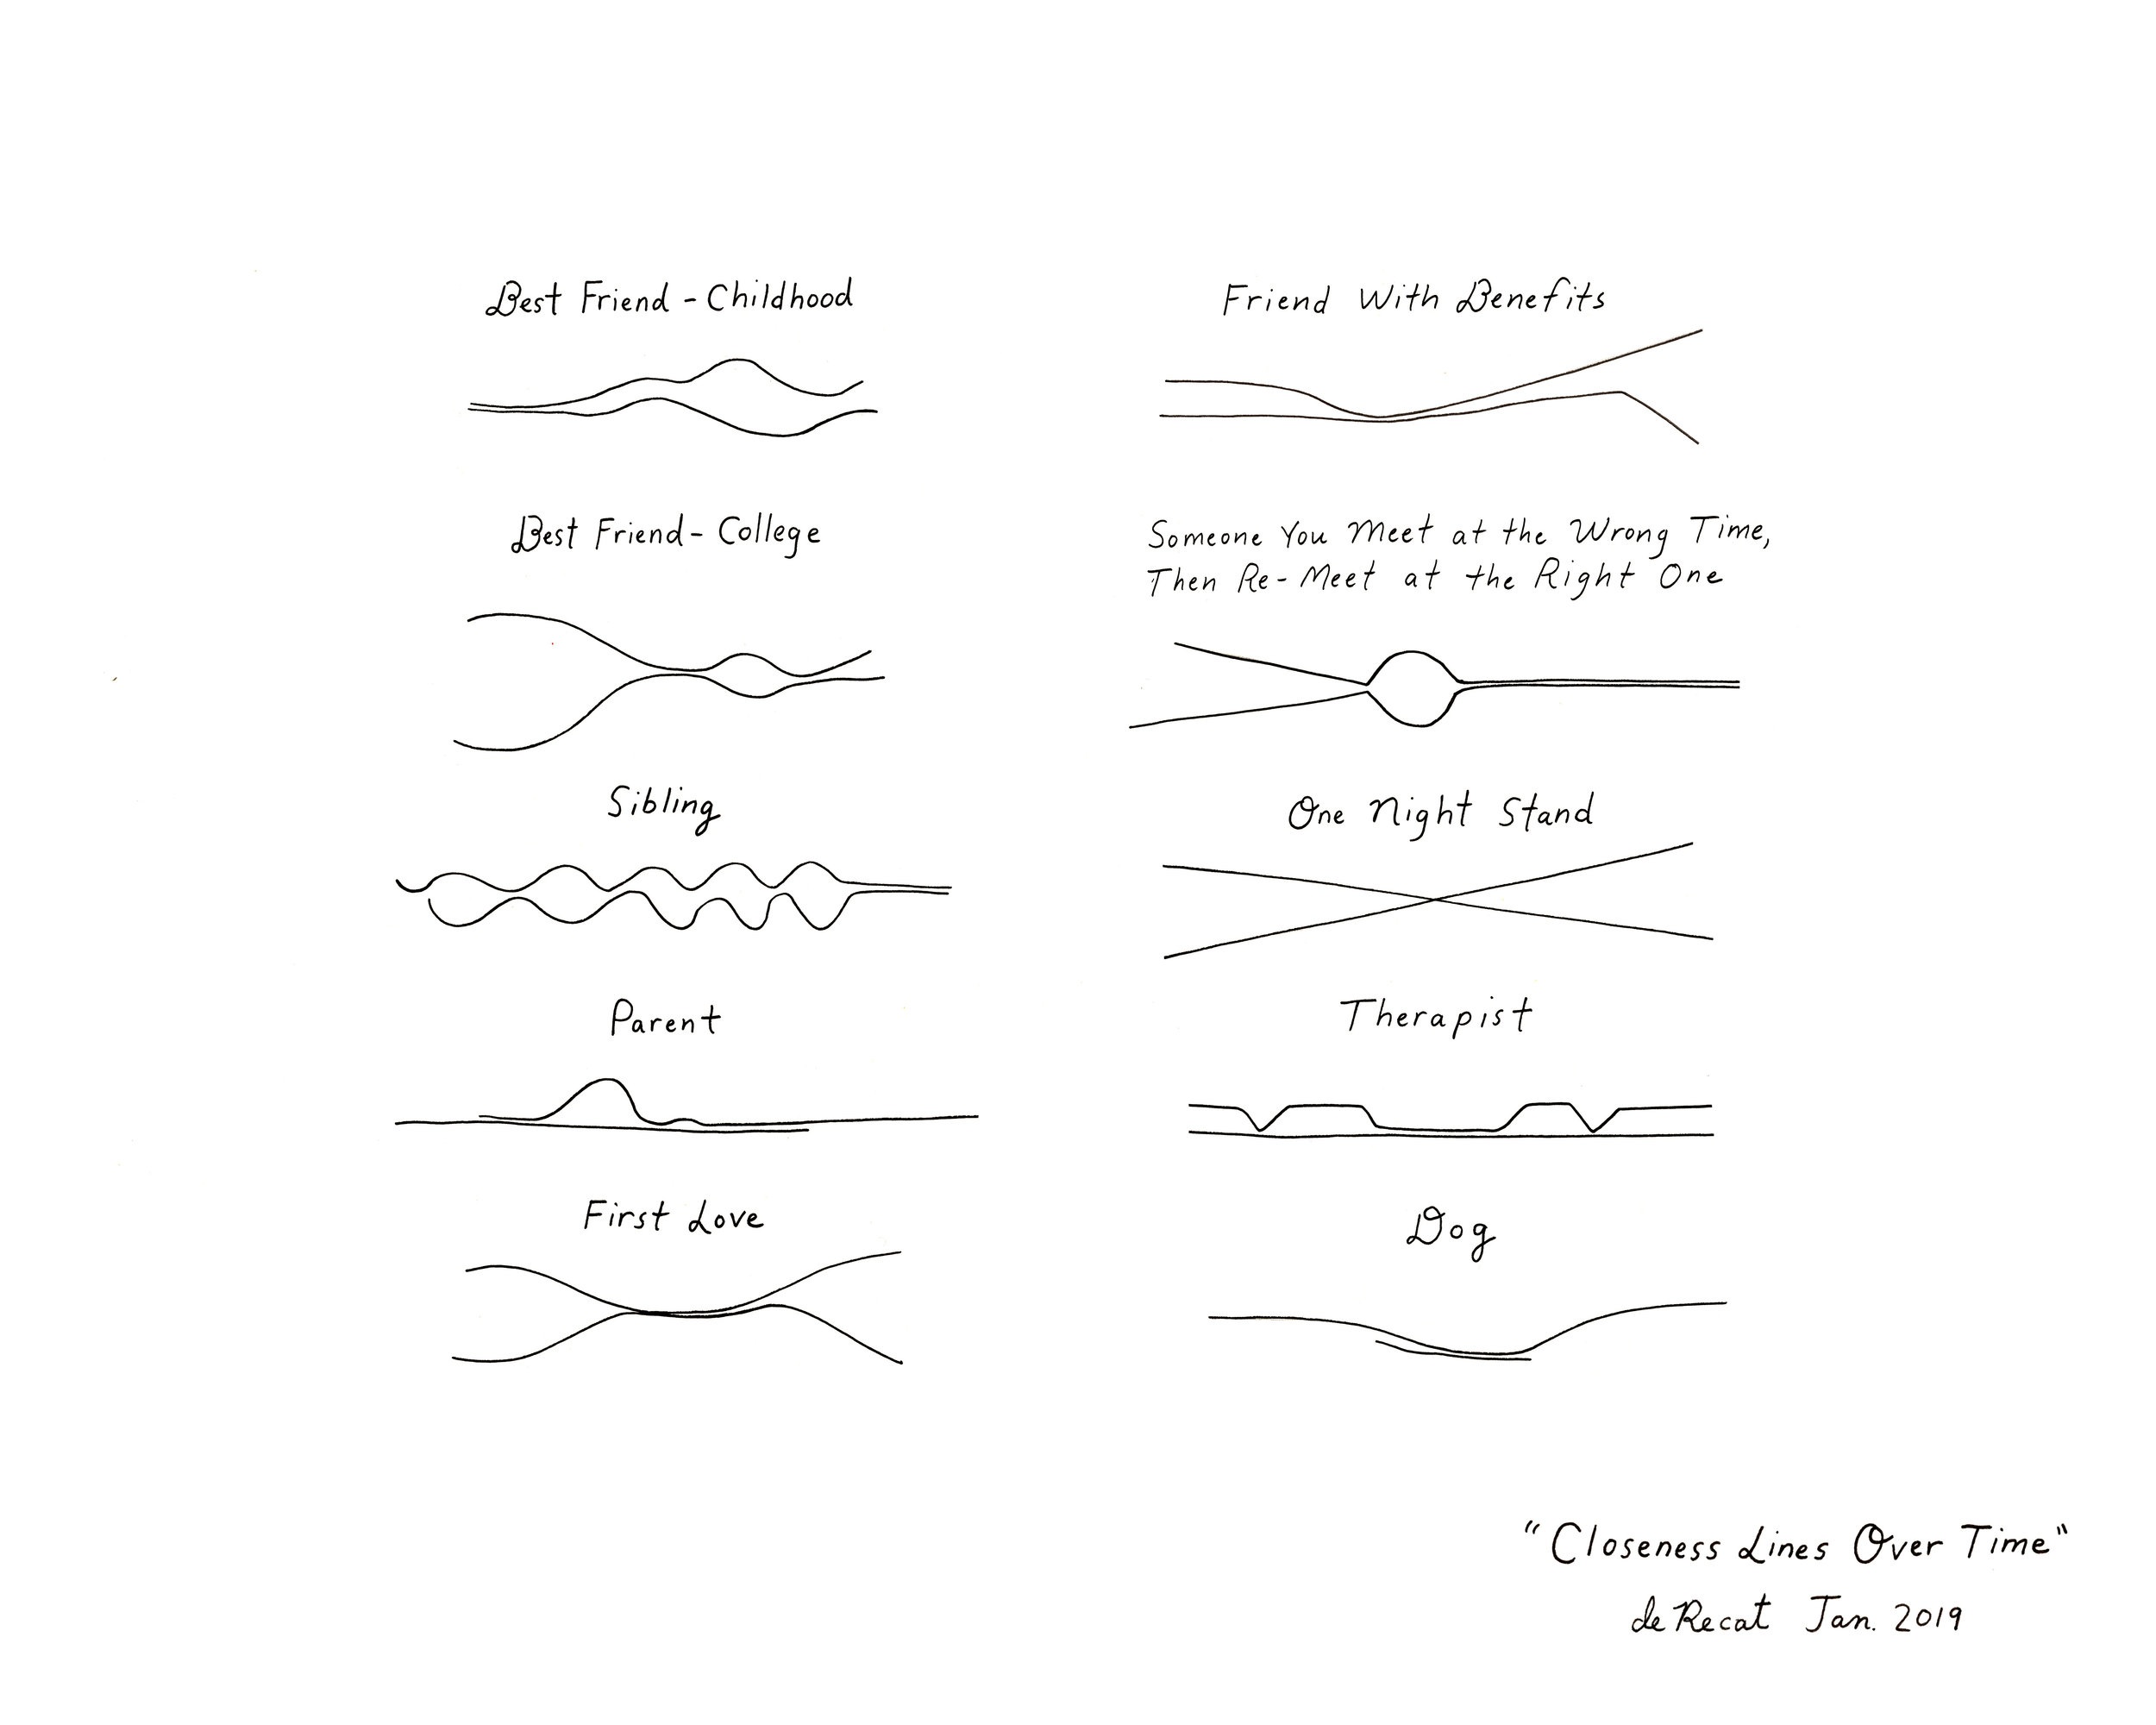 Best Friend - Childhood
Best Friend - College
Sibling
Parent
First Love
Friend With Benefits
Someone You Meet at the Wrong Time,
Then Re-Meet at the Right One
One Night Stand
Therapist
Dog
"Closeness Lines Over Time"
de Recat Jan. 2019